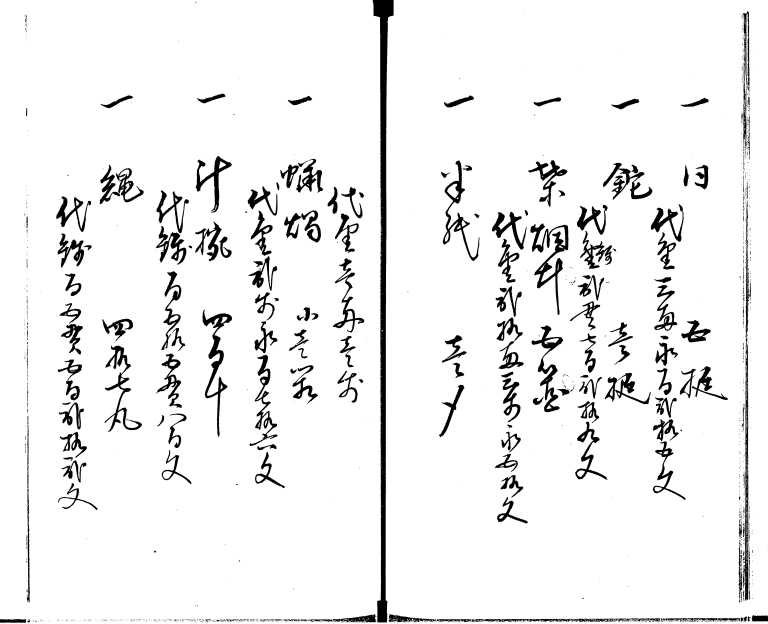 一 同 五挺
代金三両永百弐拾五文
一 鉈 壱挺
代銭弐貫七百弐拾九文
一 柴胡 五箇
代金弐拾両三分永五拾文
一 半紙 壱〆
代金壱両壱分
一 蝋燭 小壱箱
代金弐分永百七拾六文
一 汁椀 四百人
代銭百五拾五貫八百文
一 縄 四拾七丸
代銭百五貫五百弐拾弐文